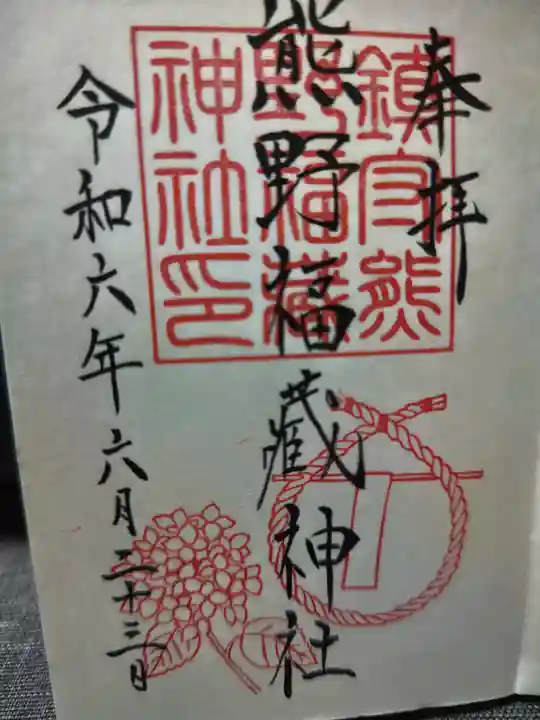 奉拝
熊野福藏神社
令和六年六月二十三日
鎮守熊
野福藏
神社印